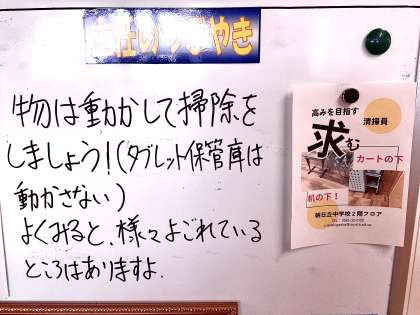 主任のつぶやき
物は動かして掃除を
しましょう!(タブレット保管庫は
動かさない)
よくみると、様々よごれている
ところはありますよ.
高みを目指す
清掃員
求む
カートの下
机の下!
朝日丘中学校2階フロア